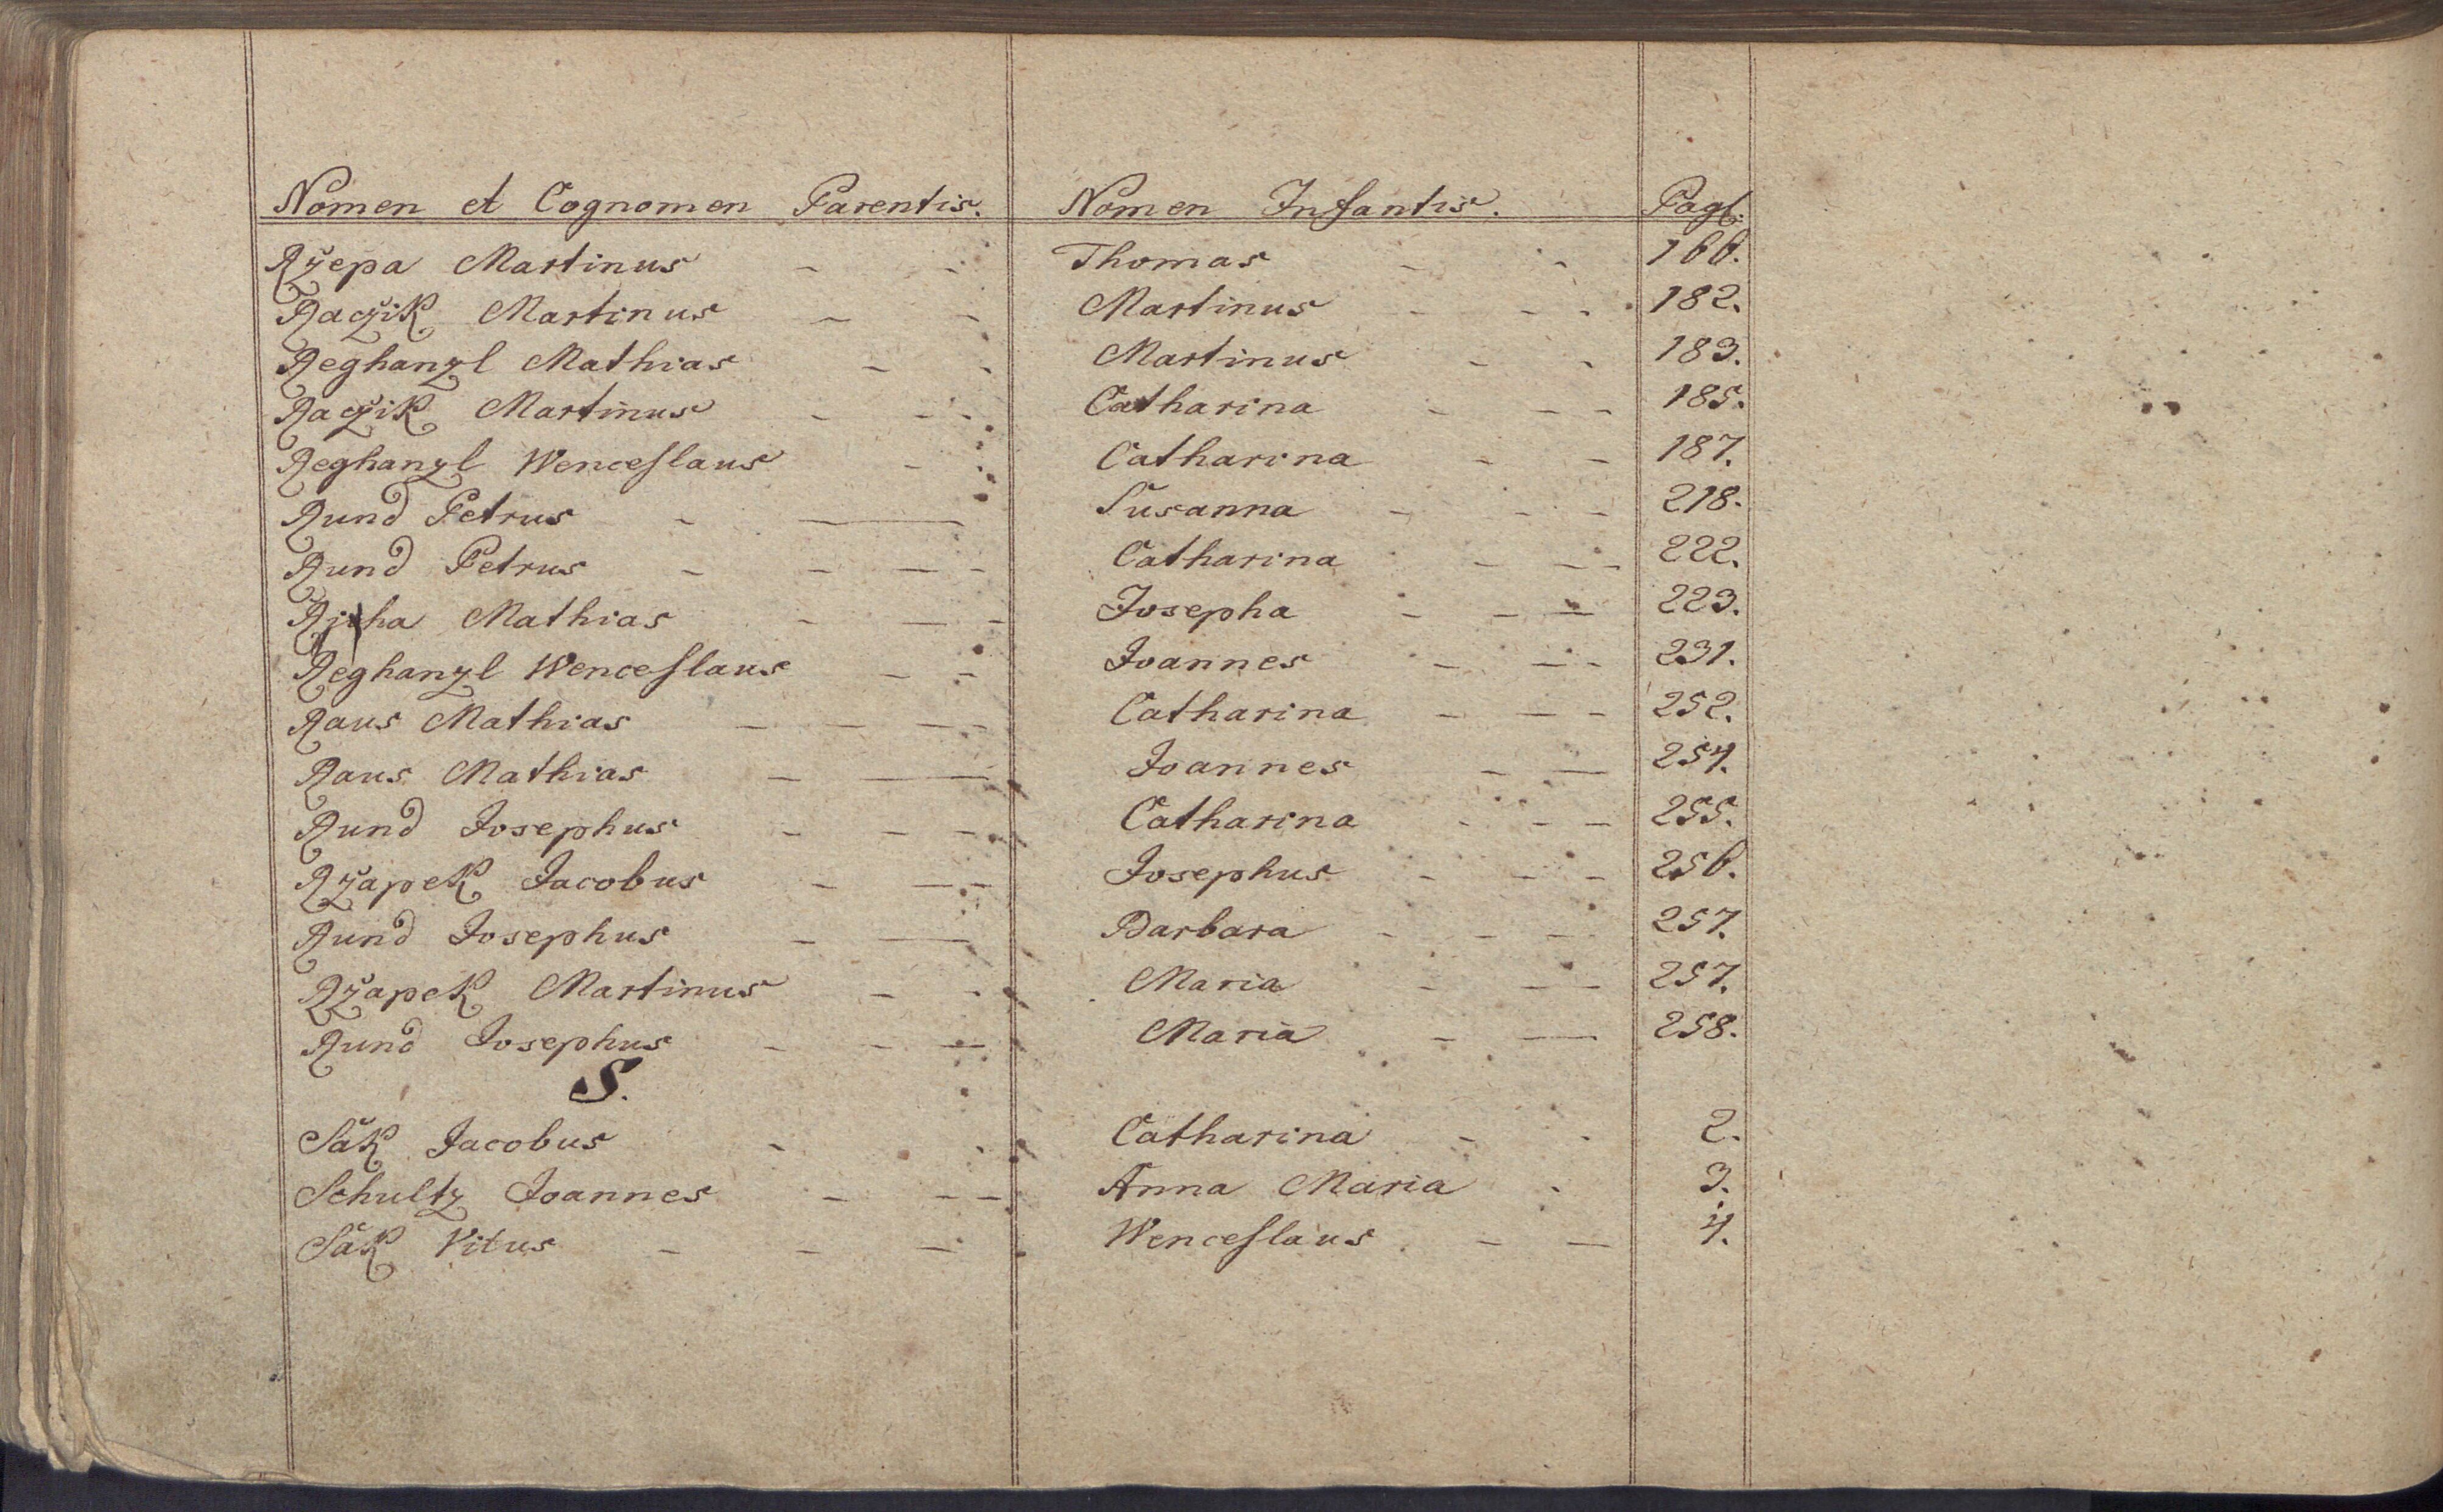 Nomen et Cognomen Parentis. Nomen Infantis. Pagl.
Rzepa Martinus - - Thomas - - 166.
Raczik Martinus - - Martinus - - - 182.
Reghanzl Mathias - - Martinus - - 183.
Raczik Martinus - - - Catharina - - - 185.
Reghanzl Wenceslaus - - Catharina - - 187.
Rund Petrus - - Susanna - - - 218.
Rund Petrus - - - - Catharina - - - 222.
Mathias - - - Josepha - - - 223.
Reghanzl Wenceslaus - - Joannes - - - 231.
Raus Mathias - - - - Catharina - - - 252.
Raus Mathias - - Joannes - - 254.
Rund Josephus - - - Catharina - - - 255.
Rzapek Jacobus - - - Josephus - - - 256.
Rund Josephus - - Barbara - - - 257.
Rzapek Martinus - - Maria - - - 257.
Rund Josephus - - - Maria - - 258.
S.
Säk Jacobus - - Catharina - - 2.
Schultz Joannes - - - Anna Maria - 3.
Säk Vitus - - - Wenceslaus - - 4.